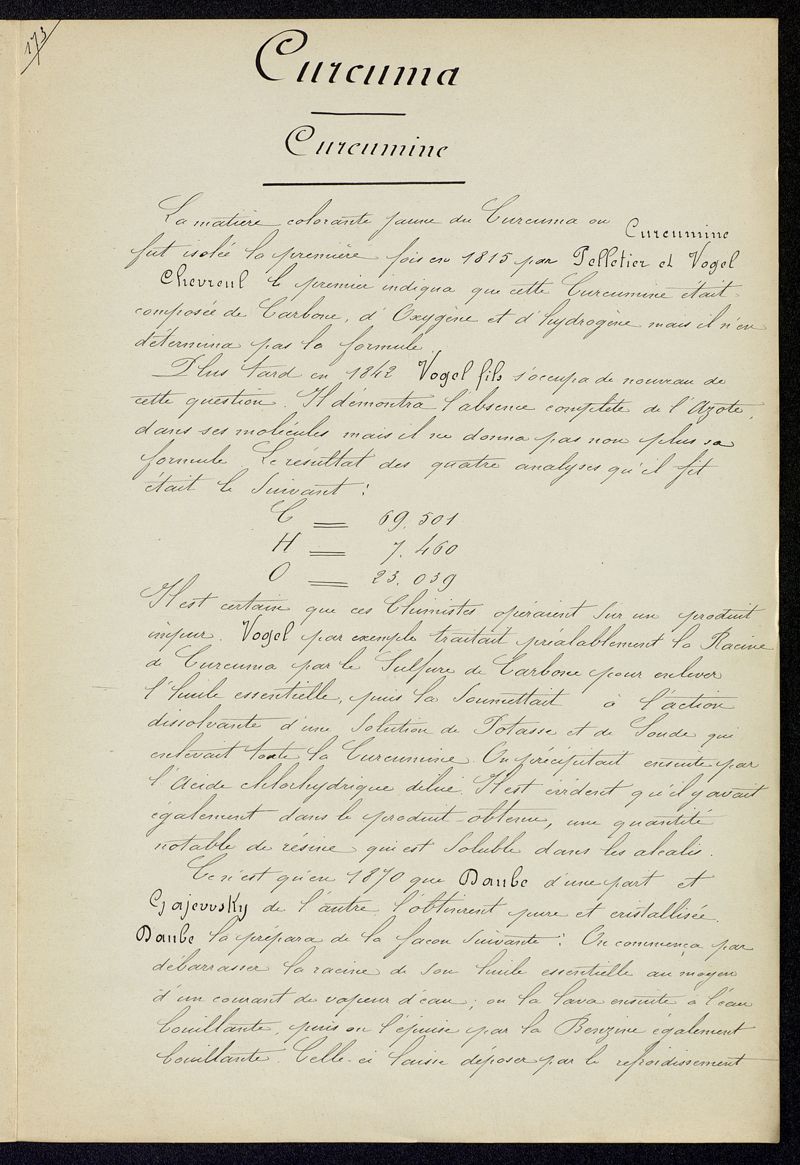 173
Curcuma
Curcumine
La matière colorante jaune du Curcuma ou Curcumine
fut isolée la première fois en 1815 par Pelletier et Vogel
Chevreul le premier indiqua que cette Curcumine était
composée de Carbone, d'Oxygène et d'hydrogène mais il n'en
détermina pas la formule.
Plus tard en 1842 Vogel fils s'occupa de nouveau de
cette question. Il démontra l'absence complète de l'Azote,
dans ses molécules mais il ne donna pas non plus sa
formule. Le résultat des quatre analyses qu'il fit
était le suivant :
C = 69.501
H = 7.460
O = 23.039
Il est certain que ces Chimistes opéraient sur un produit
impur. Vogel par exemple traitait préalablement la Racine
de Curcuma par le Sulfure de Carbone pour enlever
l'huile essentielle, puis la soumettait à l'action
dissolvante d'une solution de Potasse et de Soude qui
enlevait toute la Curcumine. On précipitait ensuite par
l'Acide chlorhydrique dilué. Il est évident qu'il y avait
également dans le produit obtenu, une quantité
notable de résine qui est soluble dans les alcalis.
Ce n'est qu'en 1870 que Daube d'une part et
Gajevvsky de l'autre l'obtinrent pure et cristallisée.
Daube la prépara de la façon suivante : On commença par
débarrasser la racine de son huile essentielle au moyen
d'un courant de vapeur d'eau ; on la lava ensuite à l'eau
bouillante, puis on l'épuise par la Benzine également
bouillante. Celle-ci laisse déposer par le refroidissement